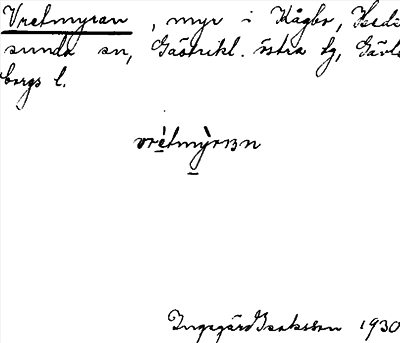 Vretmyran, myr i Kågbo, Hede
sunda sn, Gästrikl. östra tg, Gävle
borgs l.
vrètmỳrɪɜn
Ingegärd Isaksson 1930